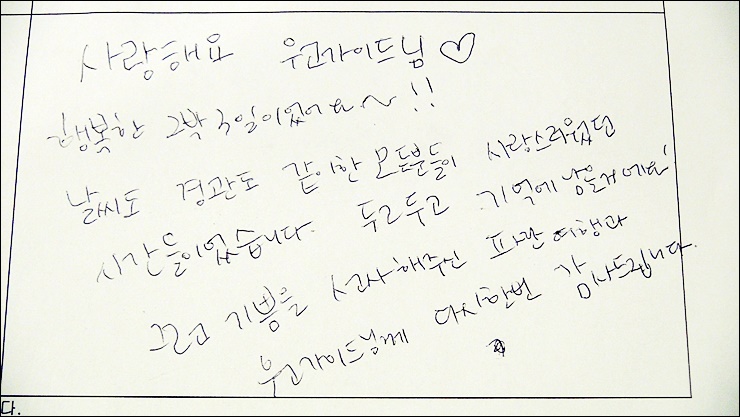 사랑해요 우고가이드님♡
행복한 2박3일이었어요~!!
날씨도 경관도 같이한 모든분들이 사랑스러웠던
시간들이었습니다. 두고두고 기억에 남을거에요!
크고 기쁨을 선사해주신 파란여행과
우고가이드님께 다시한번 감사드립니다.
다.